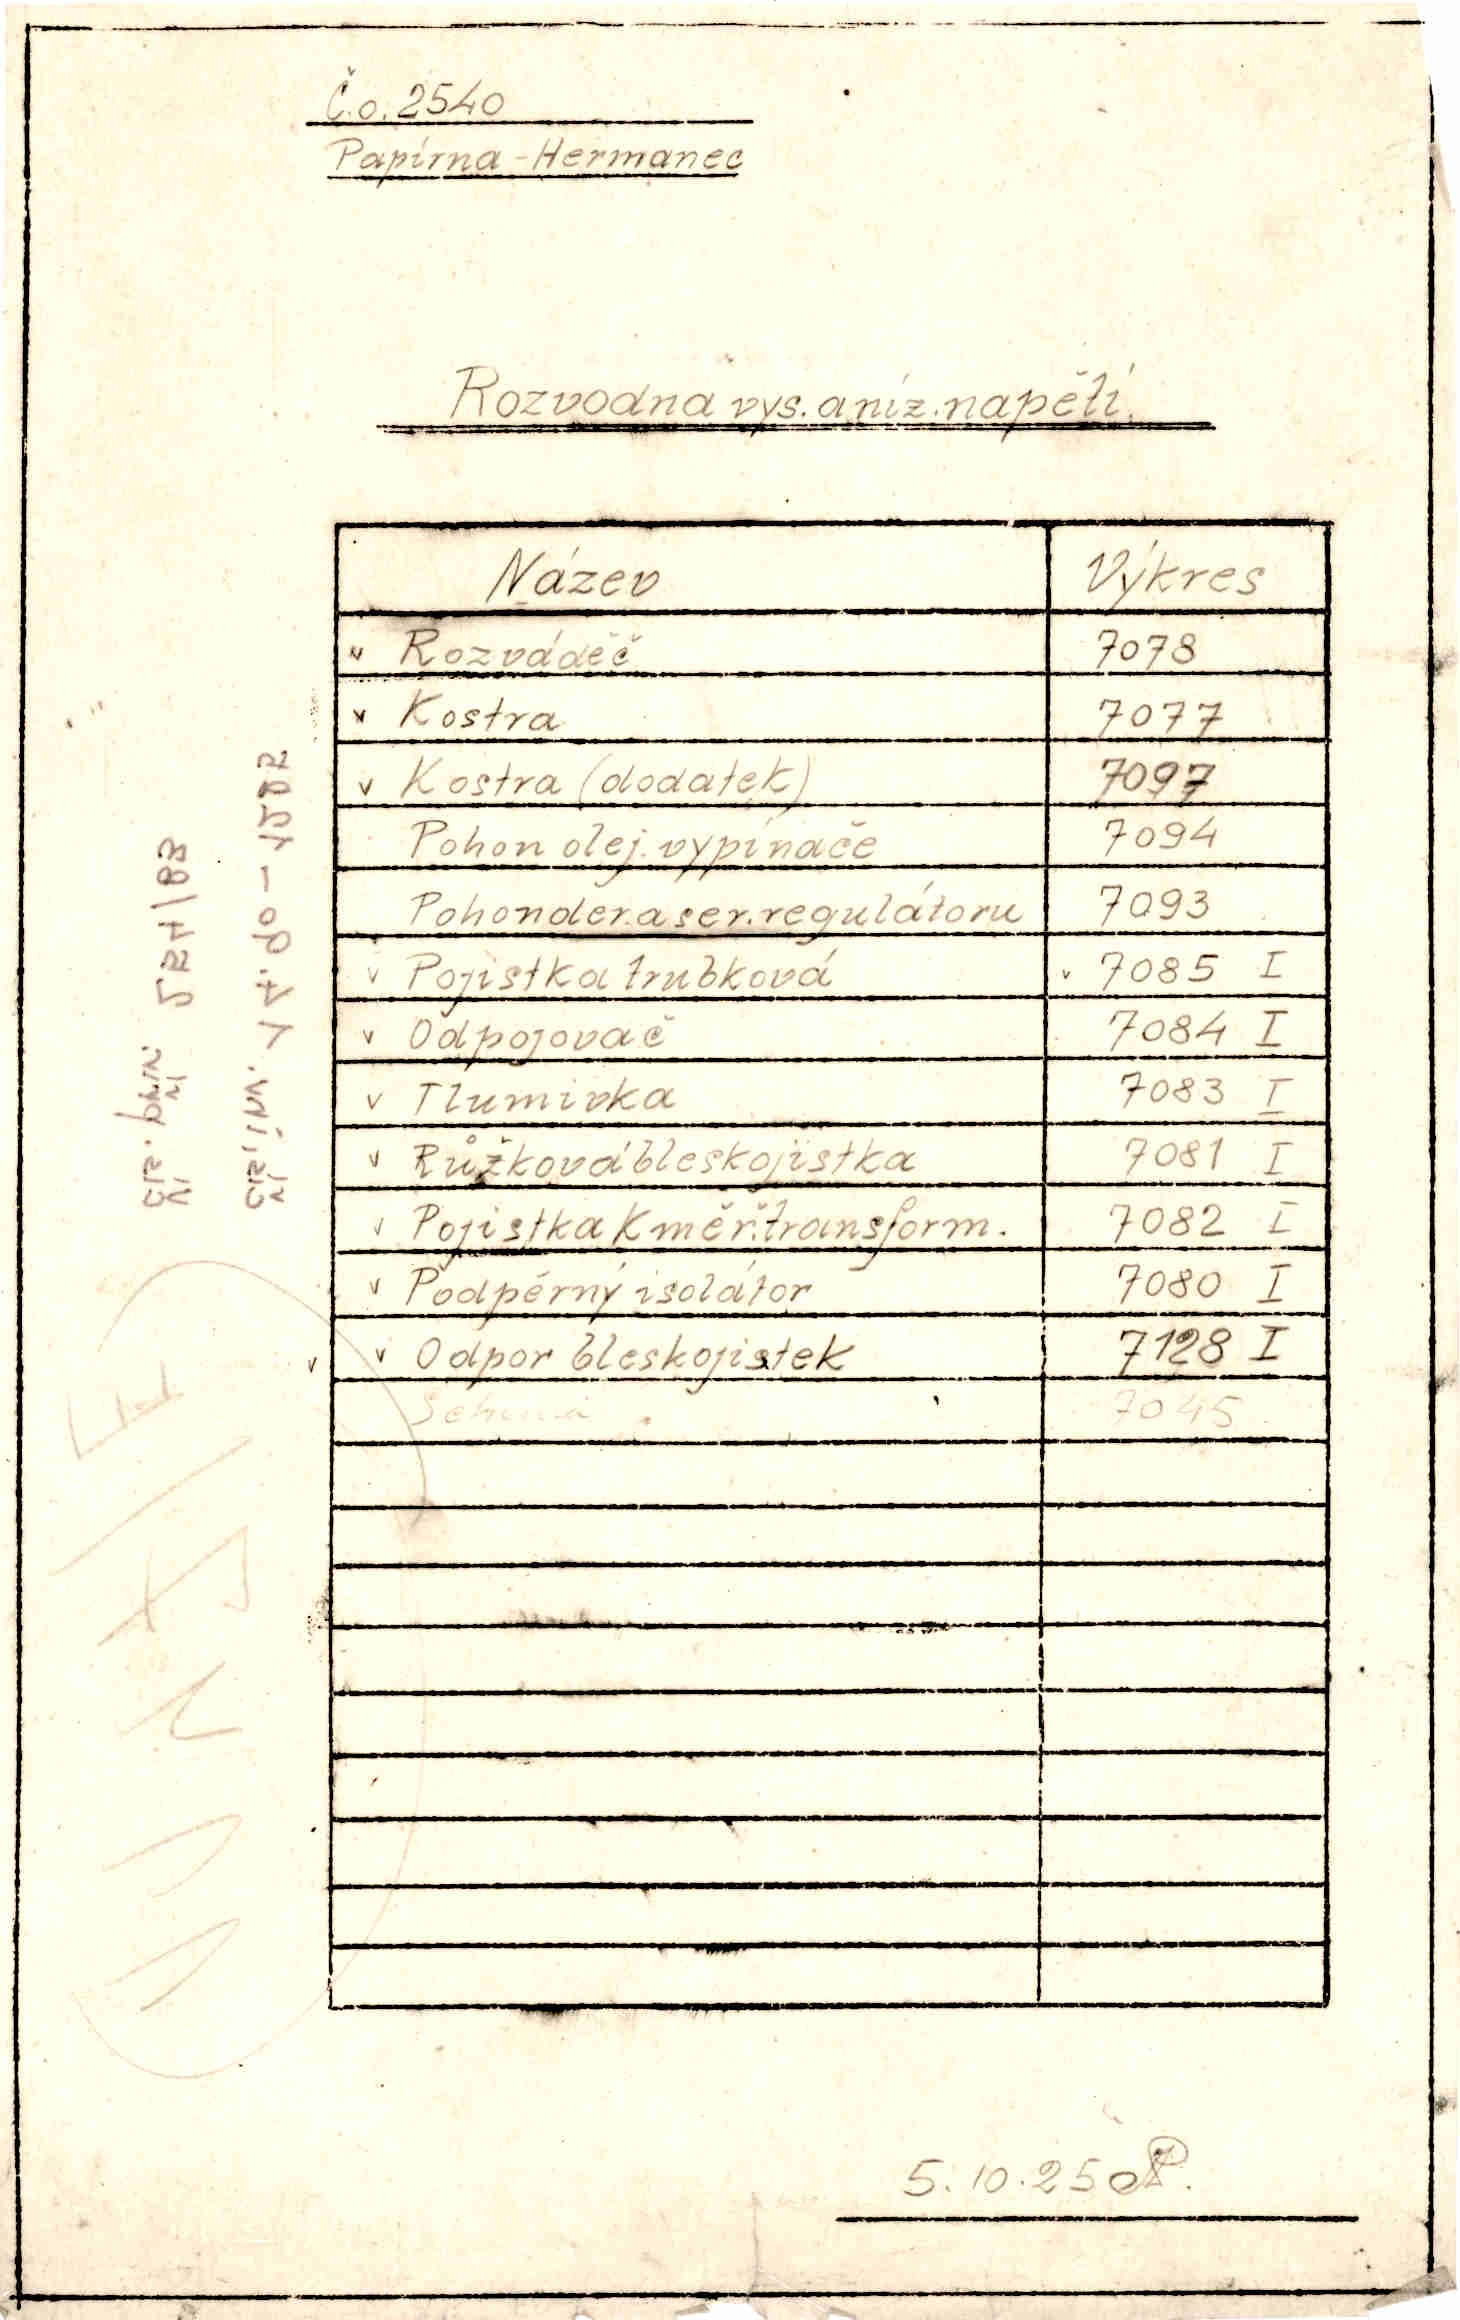 Č.o. 2540
Papírna - Hermanec
Rozvodna vys. a níz. napětí.
Název Výkres
v Rozváděč 7078
v Kostra 7077
v Kostra (dodatek) 7097
Pohon olej. vypínače 7094
Pohon der. a ser. regulátoru 7093
v Pojistka trubková v 7085 I
v Odpojovač 7084 I
v Tlumivka 7083 I
v Růžková bleskojistka 7081 I
v Pojistka k měř. transform. 7082 I
v Podpěrný isolátor 7080 I
v v Odpor bleskojistek 7128 I
7045
5.10.25